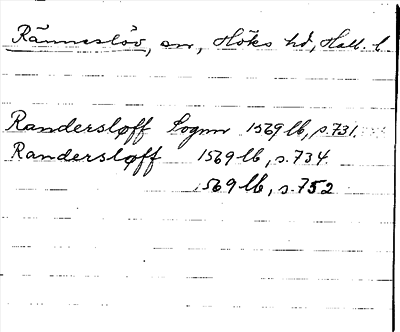 Ränneslöv, sn, Höks hd, Hall. l.
Randersløff Sognn 1569 lb, s.731.
Randersløff 1569 lb, s.734.
1569 lb, s.752